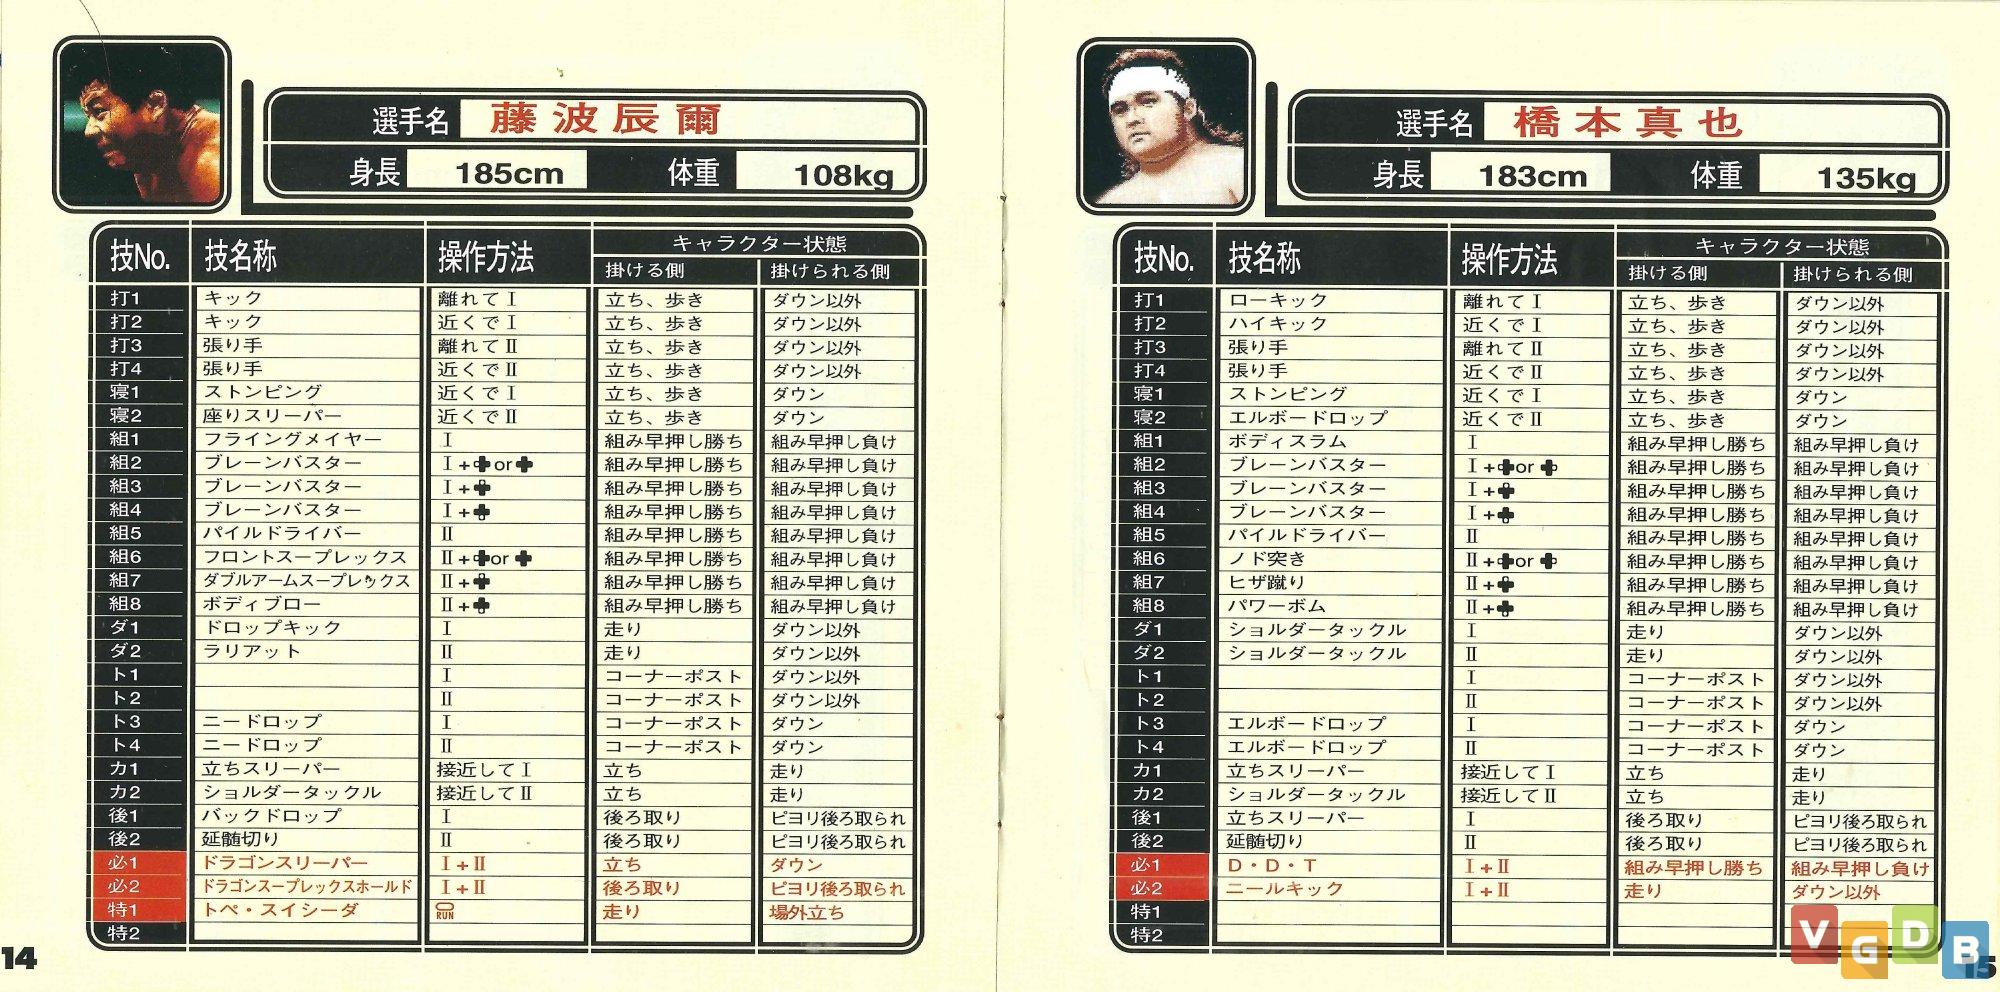 選手名 藤波辰爾
身長 185cm 体重 108kg
技No. 技名称 操作方法 キャラクター状態
掛ける側 掛けられる側
打1 キック 離れてⅠ 立ち、歩き ダウン以外
打2 キック 近くでⅠ 立ち、歩き ダウン以外
打3 張り手 離れてⅡ 立ち、歩き ダウン以外
打4 張り手 近くでⅡ 立ち、歩き ダウン以外
寝1 ストンピング 近くでⅠ 立ち、歩き ダウン
寝2 座りスリーパー 近くでⅡ 立ち、歩き ダウン
組1 フライングメイヤー Ⅰ 組み早押し勝ち 組み早押し負け
組2 ブレーンバスター Ⅰ+✚or✚ 組み早押し勝ち 組み早押し負け
組3 ブレーンバスター Ⅰ+✚ 組み早押し勝ち 組み早押し負け
組4 ブレーンバスター Ⅰ+✚ 組み早押し勝ち 組み早押し負け
組5 パイルドライバー Ⅱ 組み早押し勝ち 組み早押し負け
組6 フロントスープレックス Ⅱ+✚or✚ 組み早押し勝ち 組み早押し負け
組7 ダブルアームスープレックス Ⅱ+✚ 組み早押し勝ち 組み早押し負け
組8 ボディブロー Ⅱ+✚ 組み早押し勝ち 組み早押し負け
ダ1 ドロップキック Ⅰ 走り ダウン以外
ダ2 ラリアット Ⅱ 走り ダウン以外
ト1 Ⅰ コーナーポスト ダウン以外
ト2 Ⅱ コーナーポスト ダウン以外
ト3 ニードロップ Ⅰ コーナーポスト ダウン
ト4 ニードロップ Ⅱ コーナーポスト ダウン
カ1 立ちスリーパー 接近してⅠ 立ち 走り
カ2 ショルダータックル 接近してⅡ 立ち 走り
後1 バックドロップ Ⅰ 後ろ取り ピヨリ後ろ取られ
後2 延髄切り Ⅱ 後ろ取り ピヨリ後ろ取られ
必1 ドラゴンスリーパー Ⅰ+Ⅱ 立ち ダウン
必2 ドラゴンスープレックスホールド Ⅰ+Ⅱ 後ろ取り ピヨリ後ろ取られ
特1 トペ・スイシーダ RUN 走り 場外立ち
特2
14
選手名 橋本真也
身長 183cm 体重 135kg
技No. 技名称 操作方法 キャラクター状態
掛ける側 掛けられる側
打1 ローキック 離れてⅠ 立ち、歩き ダウン以外
打2 ハイキック 近くでⅠ 立ち、歩き ダウン以外
打3 張り手 離れてⅡ 立ち、歩き ダウン以外
打4 張り手 近くでⅡ 立ち、歩き ダウン以外
寝1 ストンピング 近くでⅠ 立ち、歩き ダウン
寝2 エルボードロップ 近くでⅡ 立ち、歩き ダウン
組1 ボディスラム Ⅰ 組み早押し勝ち 組み早押し負け
組2 ブレーンバスター Ⅰ+✚or✚ 組み早押し勝ち 組み早押し負け
組3 ブレーンバスター Ⅰ+✚ 組み早押し勝ち 組み早押し負け
組4 ブレーンバスター Ⅰ+✚ 組み早押し勝ち 組み早押し負け
組5 パイルドライバー Ⅱ 組み早押し勝ち 組み早押し負け
組6 ノド突き Ⅱ+✚or✚ 組み早押し勝ち 組み早押し負け
組7 ヒザ蹴り Ⅱ+✚ 組み早押し勝ち 組み早押し負け
組8 パワーボム Ⅱ+✚ 組み早押し勝ち 組み早押し負け
ダ1 ショルダータックル Ⅰ 走り ダウン以外
ダ2 ショルダータックル Ⅱ 走り ダウン以外
ト1 Ⅰ コーナーポスト ダウン以外
ト2 Ⅱ コーナーポスト ダウン以外
ト3 エルボードロップ Ⅰ コーナーポスト ダウン
ト4 エルボードロップ Ⅱ コーナーポスト ダウン
カ1 立ちスリーパー 接近してⅠ 立ち 走り
カ2 ショルダータックル 接近してⅡ 立ち 走り
後1 立ちスリーパー Ⅰ 後ろ取り ピヨリ後ろ取られ
後2 延髄切り Ⅱ 後ろ取り ピヨリ後ろ取られ
必1 D・D・T Ⅰ+Ⅱ 組み早押し勝ち 組み早押し負け
必2 ニールキック Ⅰ+Ⅱ 走り ダウン以外
特1
特2
15
VGDB